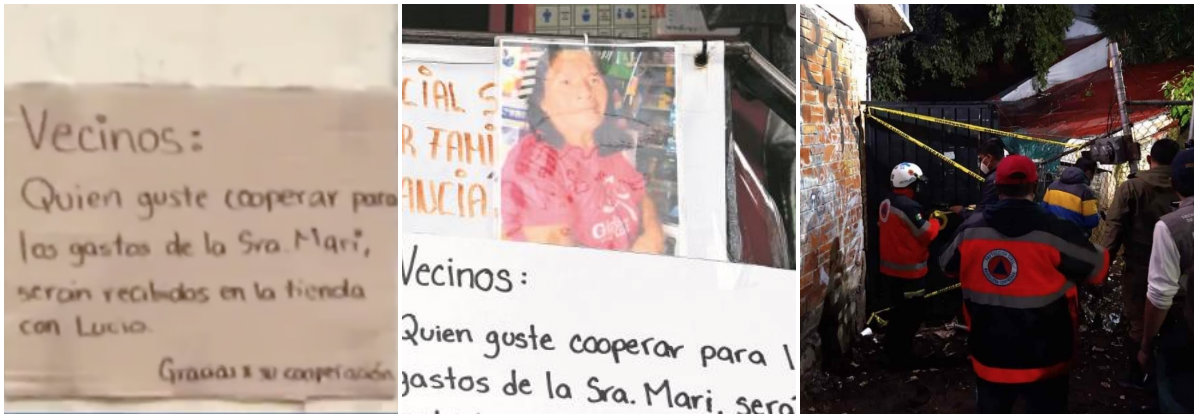 Vecinos:
Quien guste cooperar para
los gastos de la Sra. Mari,
serán recibidos en la tienda
con Lucio.
Gracias x su cooperación
CIAL S
R FAMI
ANCIA.
Vecinos:
Quien guste cooperar para l
gastos de la Sra. Mari, será